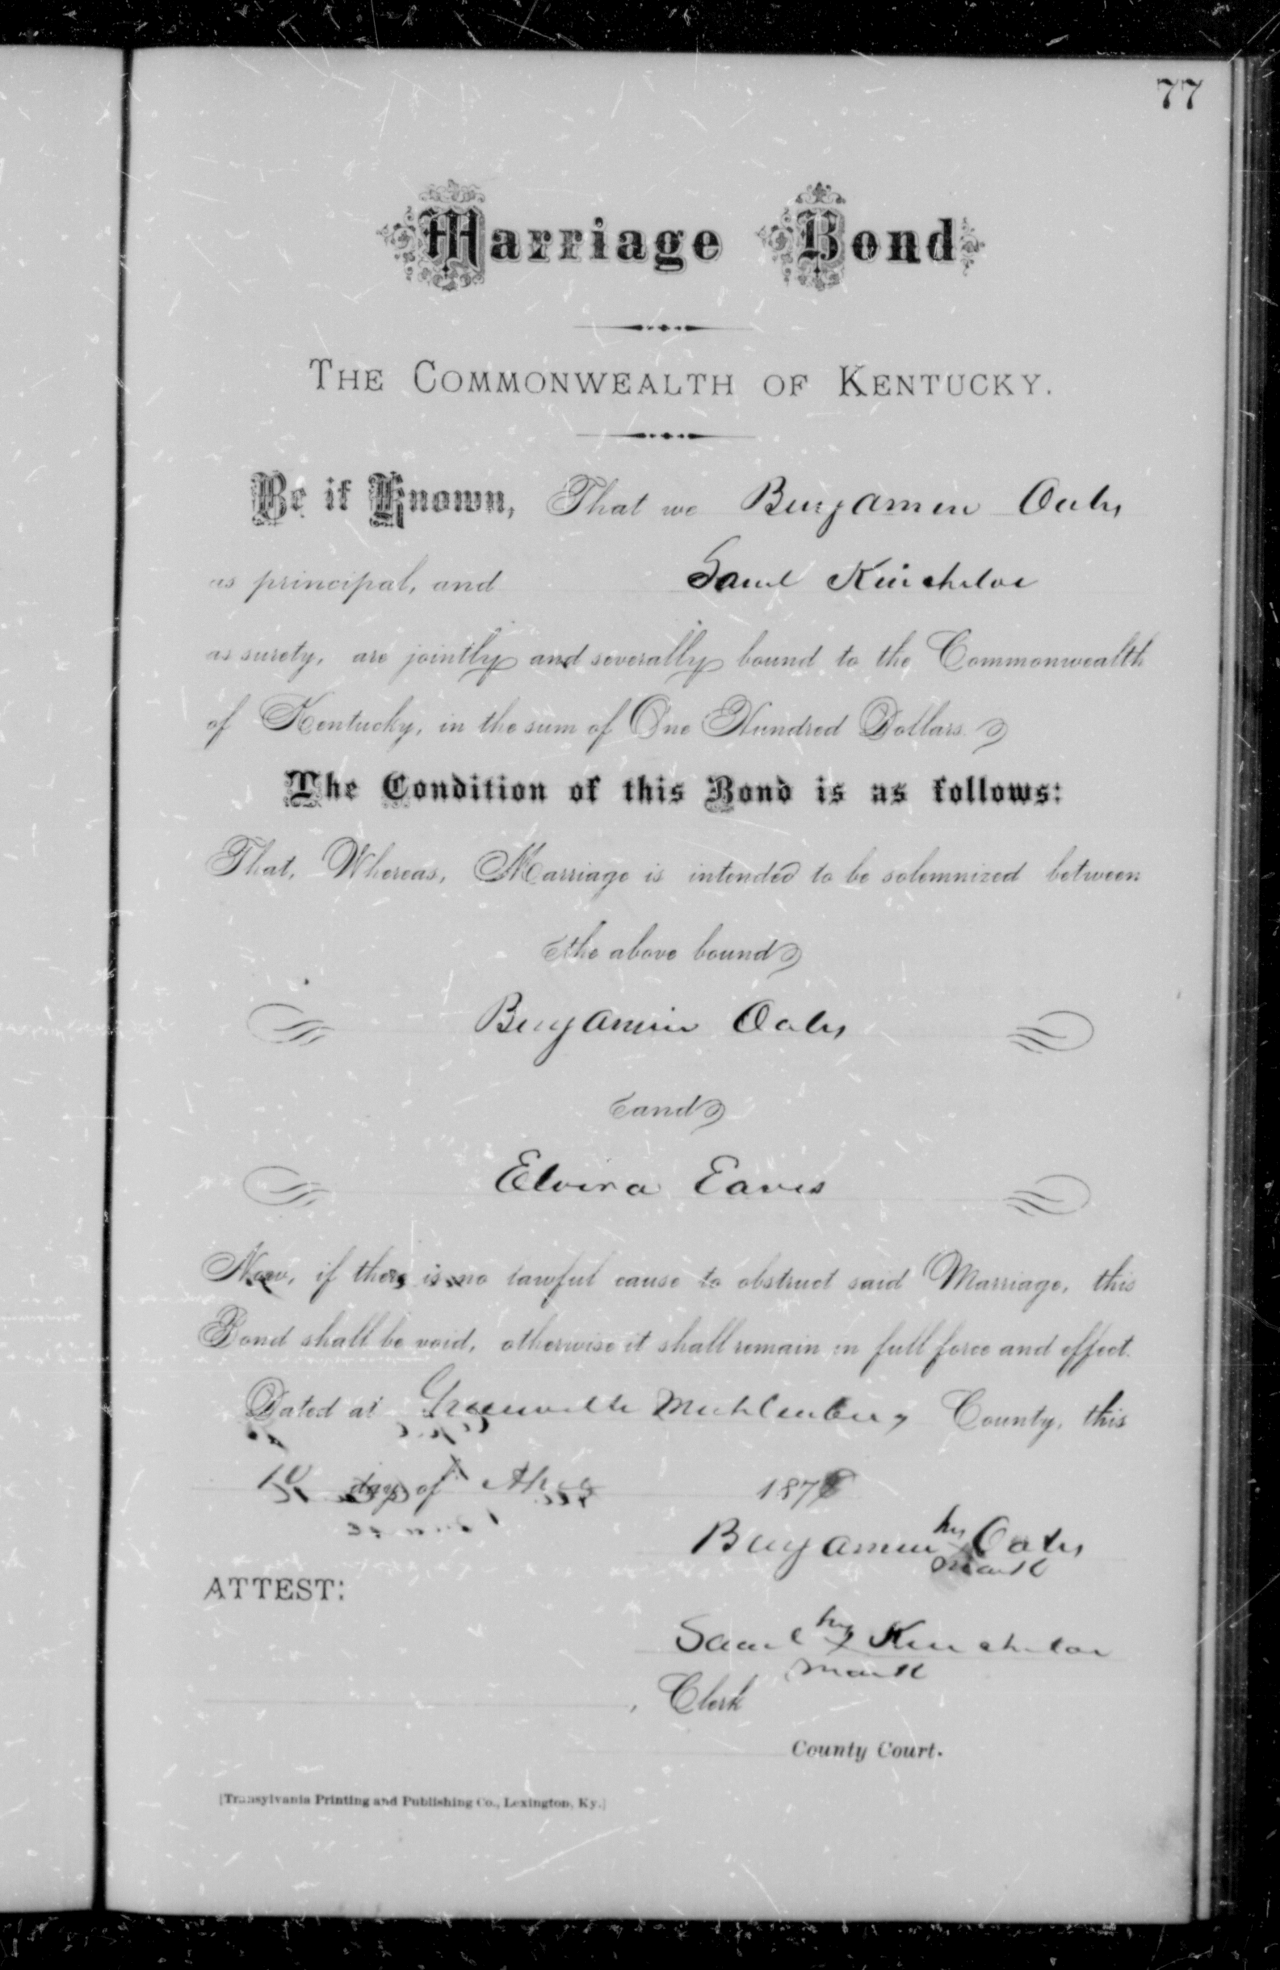 77
Marriage Bond
THE COMMONWEALTH OF KENTUCKY.
Be it Known, That we Benjamin Oates
as principal, and Saml Kincheloe
as surety, are jointly and severally bound to the Commonwealth
of Kentucky, in the sum of One Hundred Dollars.
The Condition of this Bond is as follows:
That, Whereas, Marriage is intended to be solemnized between
the above bound
Benjamin Oates
and
Elvira Eaves
Now, if there is no lawful cause to obstruct said Marriage, this
Bond shall be void, otherwise it shall remain in full force and effect.
Dated at Greenville Muhlenberg County, this
day of 187
Benjamin his x Oates
mark
ATTEST:
Saml his x Kincheloe
mark
, Clerk
County Court.
[Transylvania Printing and Publishing Co., Lexington, Ky.]